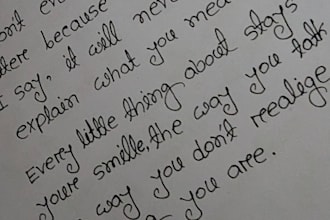 don't
there because
I say, it will never
explain what you mea
Every little thing about stays
youre smile, the way you talk
way you don't reealige
you are.